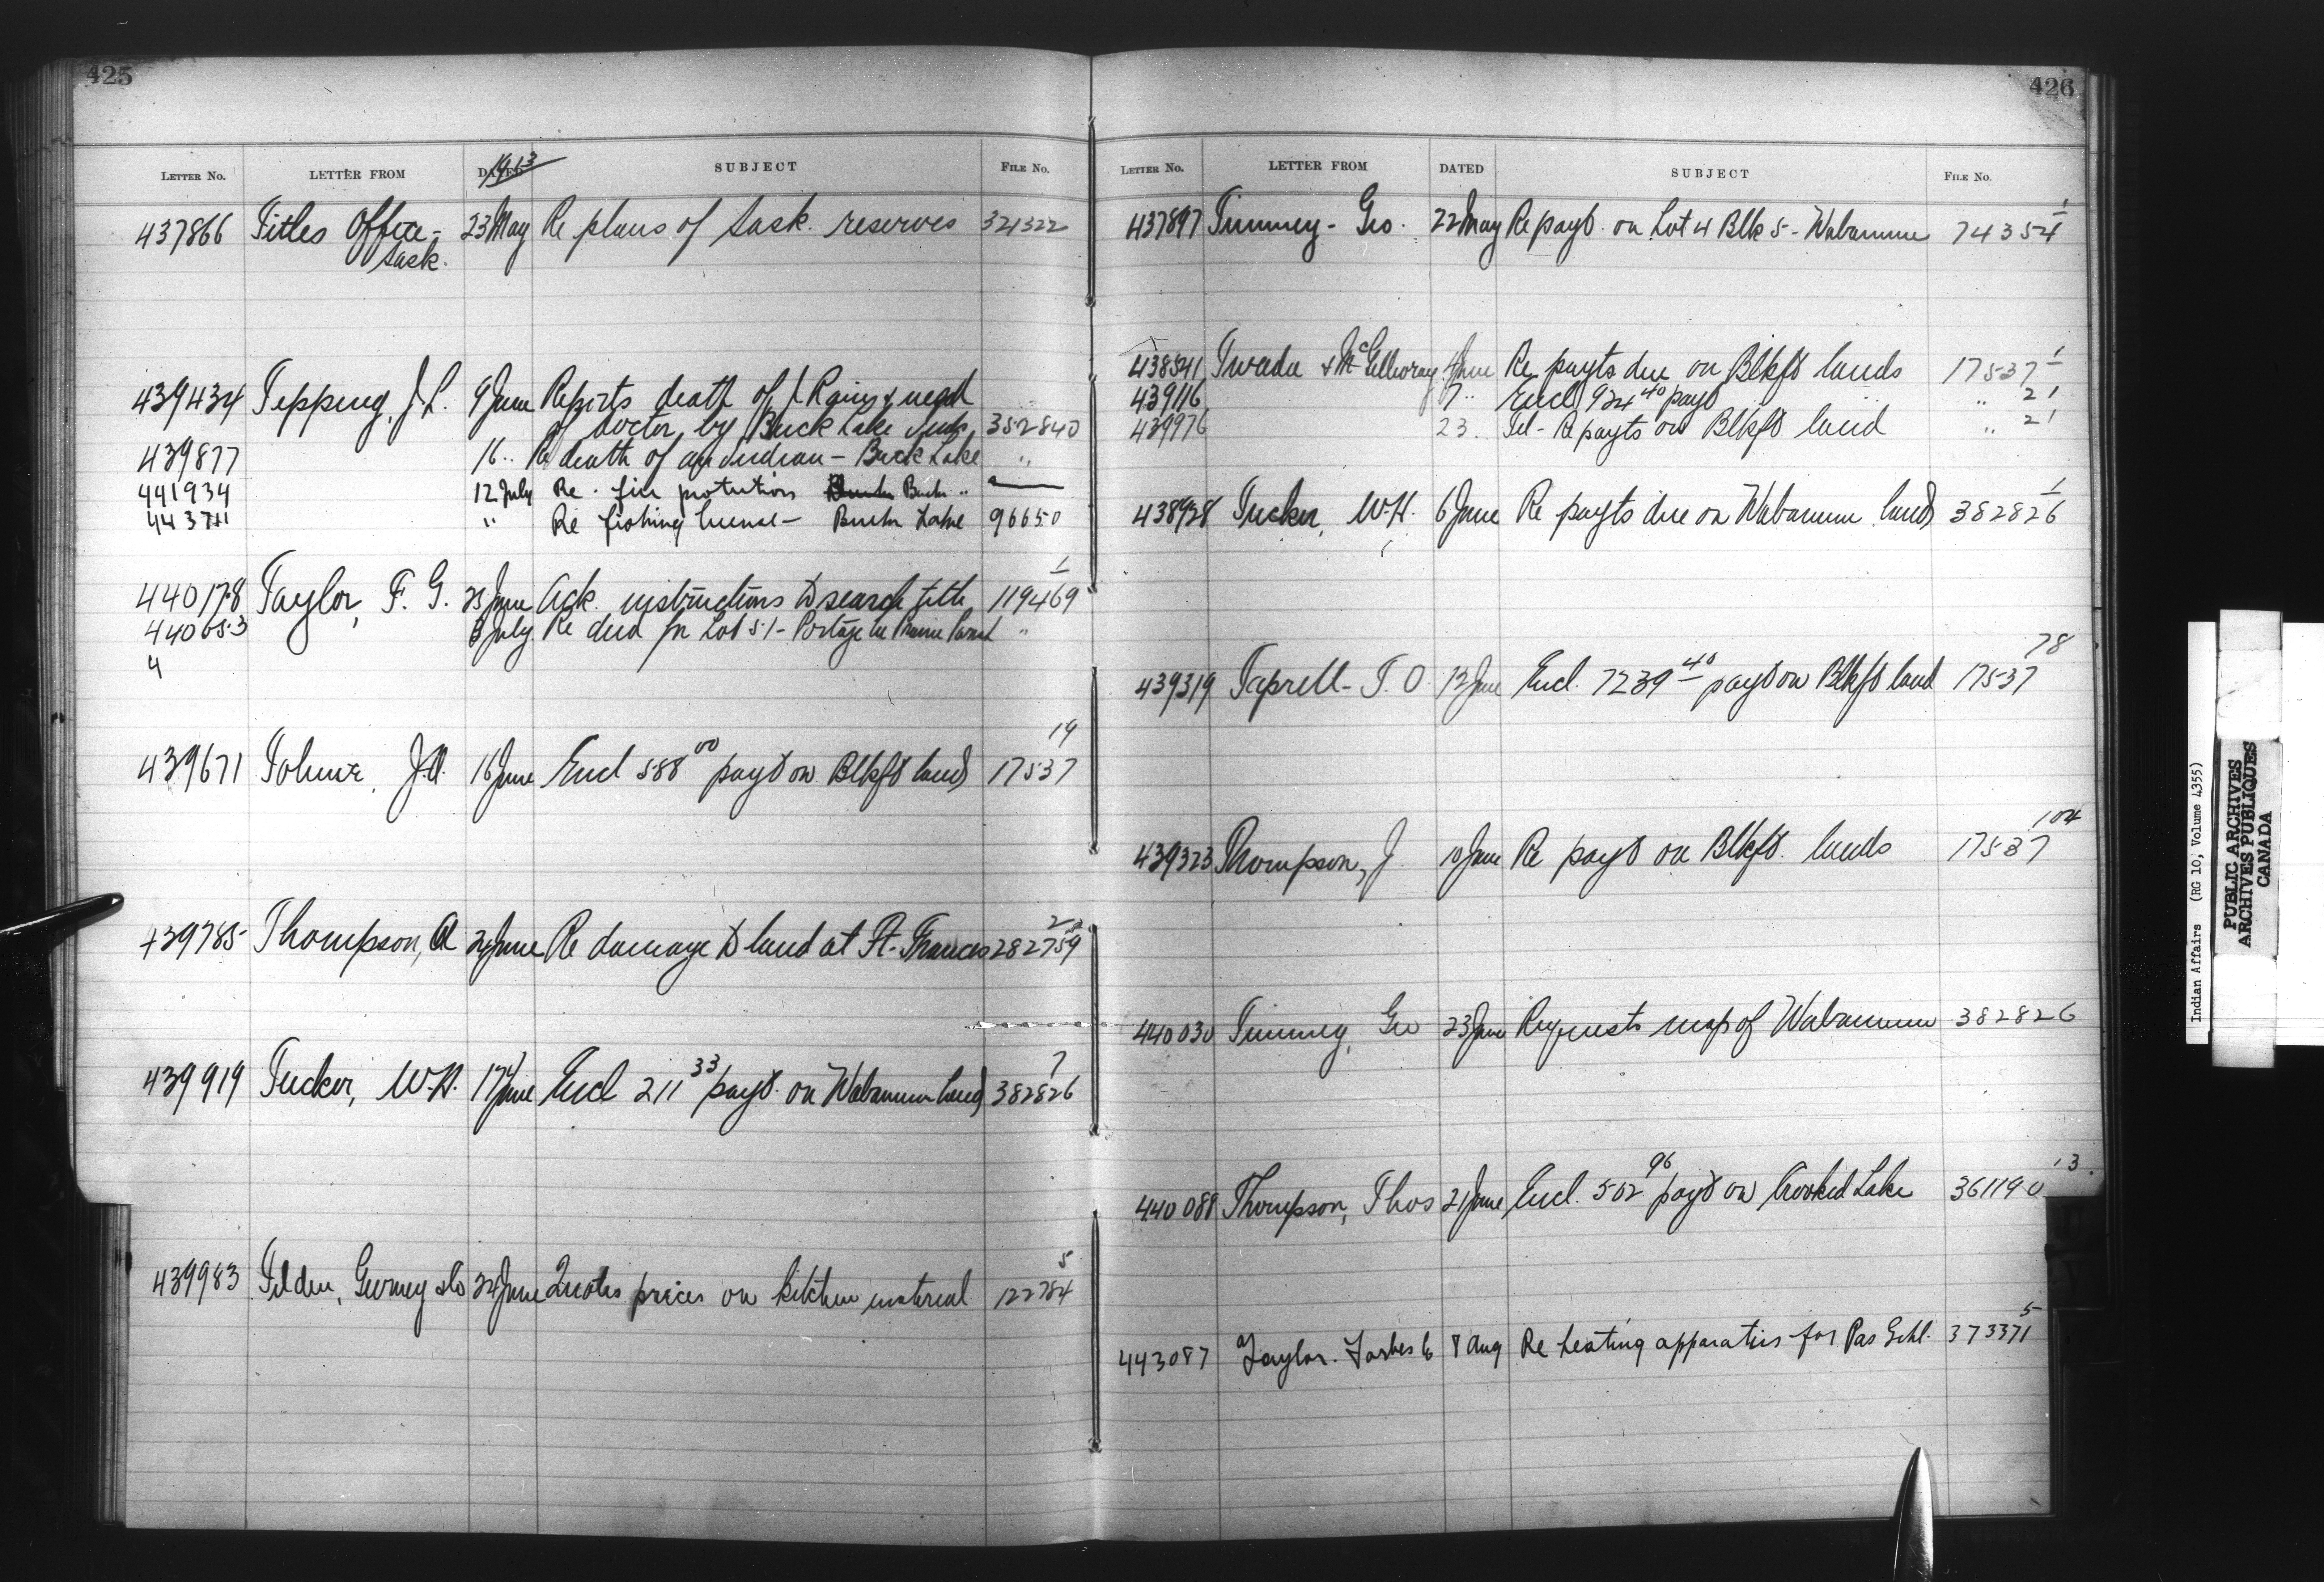 425
1913
LETTER No. LETTER FROM DATED SUBJECT FILE No.
437866 Titles Office - 23 May Re plans of Sask. reserves 321322
Sask.
439434 Tepping, J. L. 9 June Reports death of J Rains & need
of doctor by Buck Lake Inds. 352840
439877 16 .. Re death of an Indian - Buck Lake "
441934 12 July Re. fire protection Buck " —
443711 " Re fishing license - Buck Lake 96650
1
440178 Taylor, F. G. 25 June Ack. instructions to search title 119469
440653 3 July Re deed for Lot 51 - Portage la Prairie "
4
19
439671 J.A. 16 June Encl 588 00 payt on Blkft lands 17537
2
439785 Thompson, A 24 June Re damage to land at Ft. Frances 282759
7
439919 Tucker, W.H. 17 June Encl 211 33 payt. on Wabamun lands 382826
5
439983 Tilden, Gurney & Co 24 June Quotes prices on kitchen material 122784
426
LETTER No. LETTER FROM DATED SUBJECT FILE No.
1
437897 Timmey - Geo. 22 May Re payt. on Lot 4 Blk 5 - Wabamun 74354
1
438541 & McGillivray 4 June Re payts due on Blkft lands 17537
439116 7 .. Encl 924 40 payt " 21
439976 23. Tel - Re payts on Blkft land " 21
1
438928 Tucker, W.H. 6 June Re payts due on Wabamun lands 382826
78
439319 Taprell - T. O. 12 June Encl. 7239 40 payt on Blkft land 17537
104
439323 Thompson, J 10 June Re payt on Blkft. lands 17537
440030 Timmey, Geo 23 June Requests map of Wabamun 382826
13
440088 Thompson, Thos 21 June Encl. 502 96 payt on Crooked Lake 361190
5
443087 Taylor. Forbes Co 8 Aug Re heating apparatus for Pas Schl. 373371
Indian Affairs (RG 10, Volume 4355)
PUBLIC ARCHIVES
ARCHIVES PUBLIQUES
CANADA